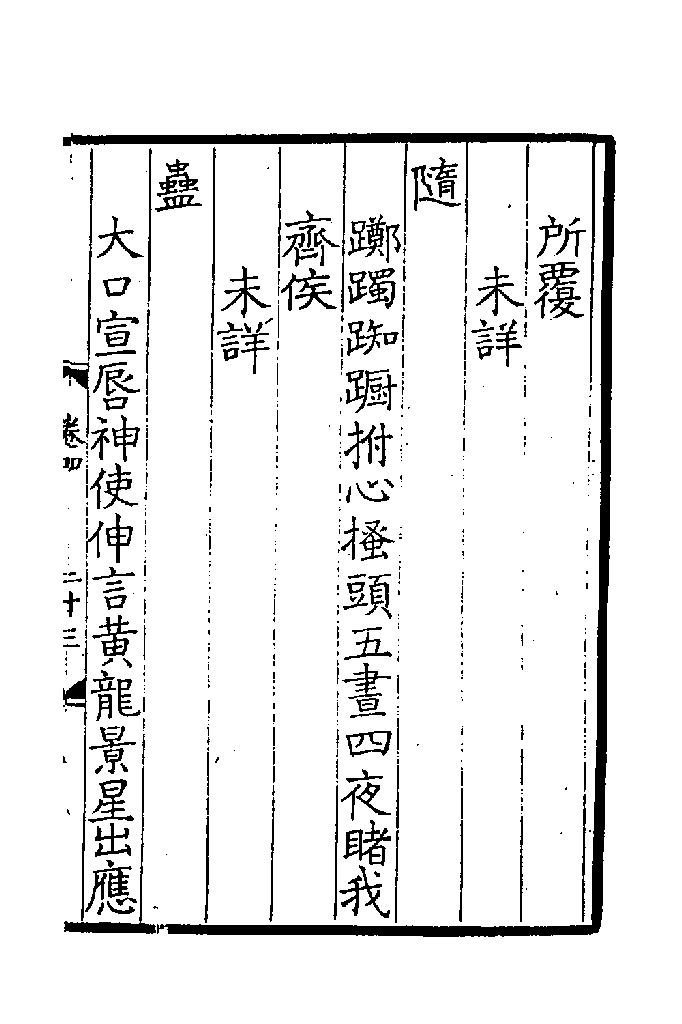 所覆
未詳
隨
躑躅踟蹰拊心搔頭五晝四夜睹我
齊侯
未詳
蠱
大口宣唇神使伸言黃龍景星出應
卷四
二十三